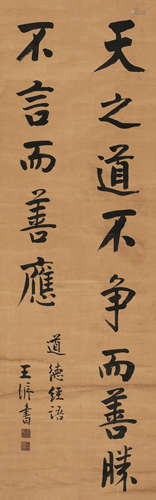 天之道不争而善勝
不言而善應
道德經語
王㳂書